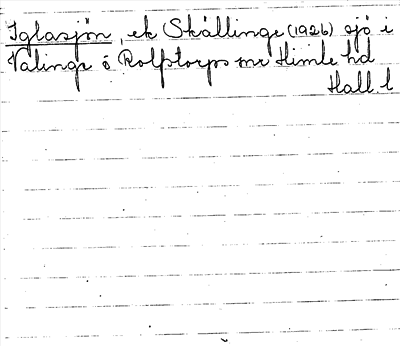 Iglasjön, ek Skällinge (1926) sjö i
Valinge o Rolfstorps snr Himle hd
Hall. l